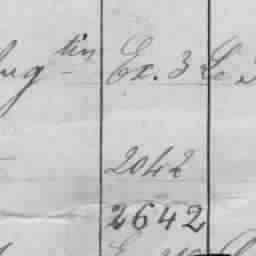 ug tin Ex. 3 Le
2042
2642